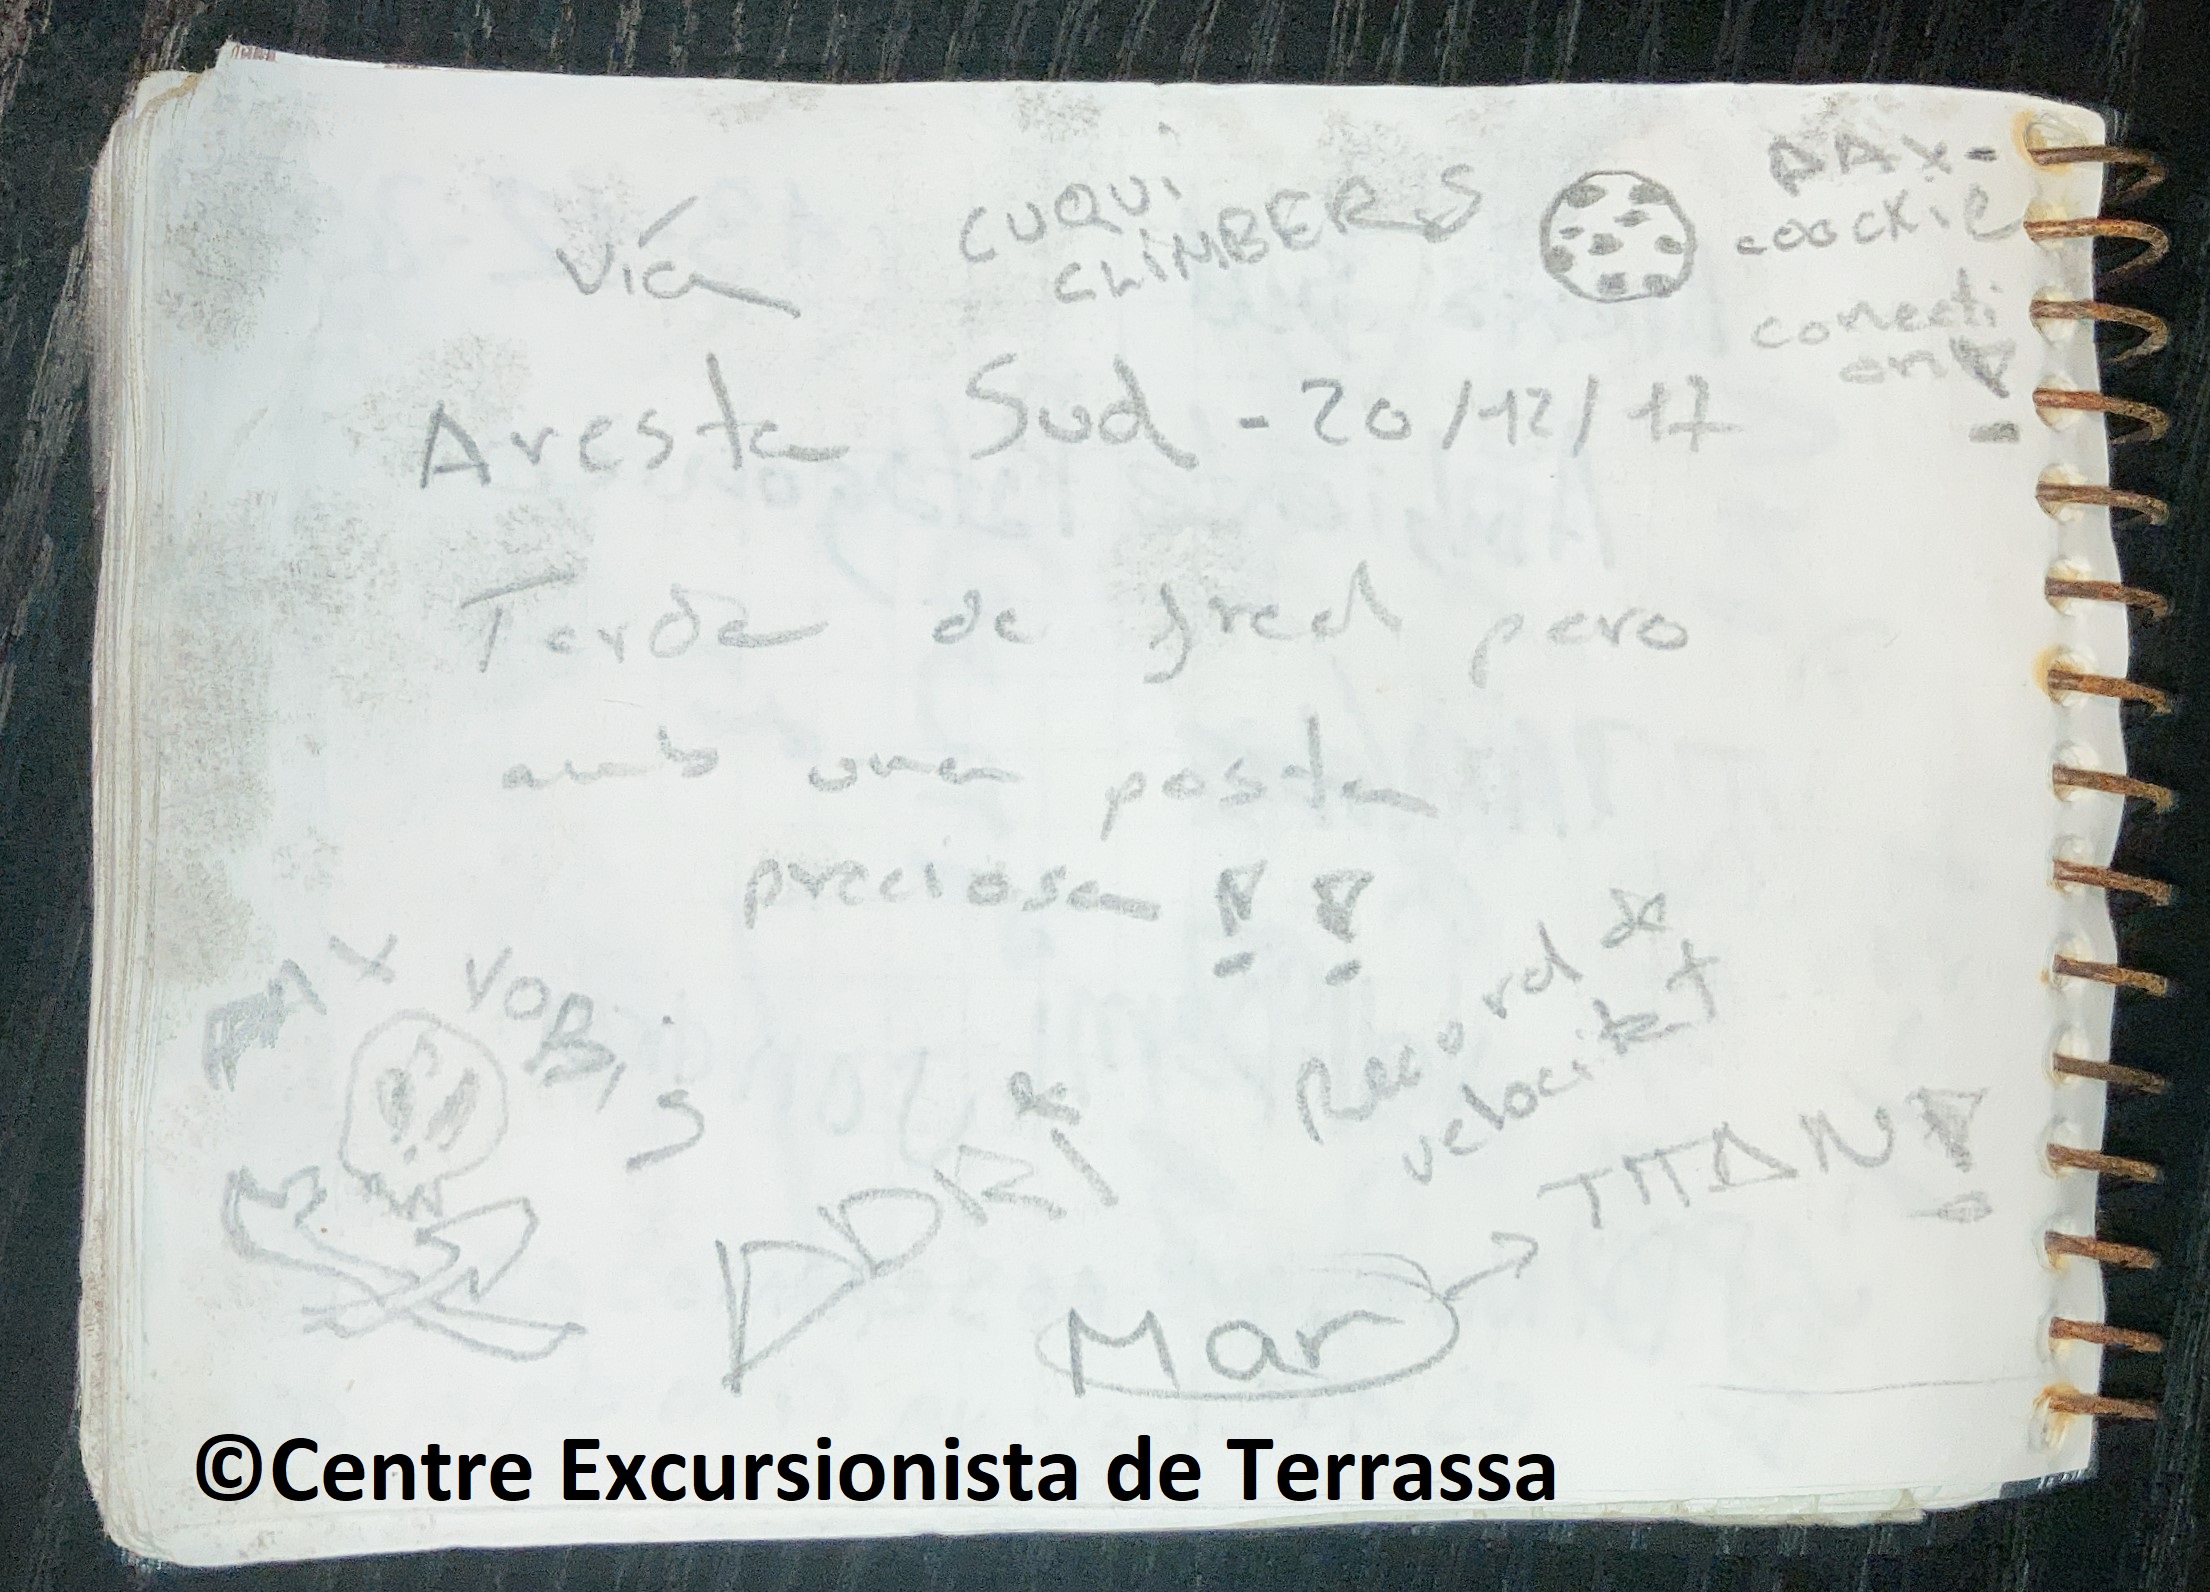 Vía
CUQUI
CLIMBERS
PAX-
coockie
conecti
on!
Aresta Sud - 20/12/17
Tarda de fred pero
amb una posta
preciosa !!
PAX VOBIS
Record de
velocitat
&
Mar
TITAN!
©Centre Excursionista de Terrassa